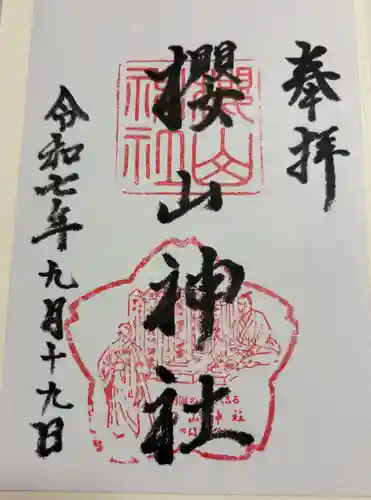 奉拝
櫻山神社
櫻山神社
令和七年九月十九日